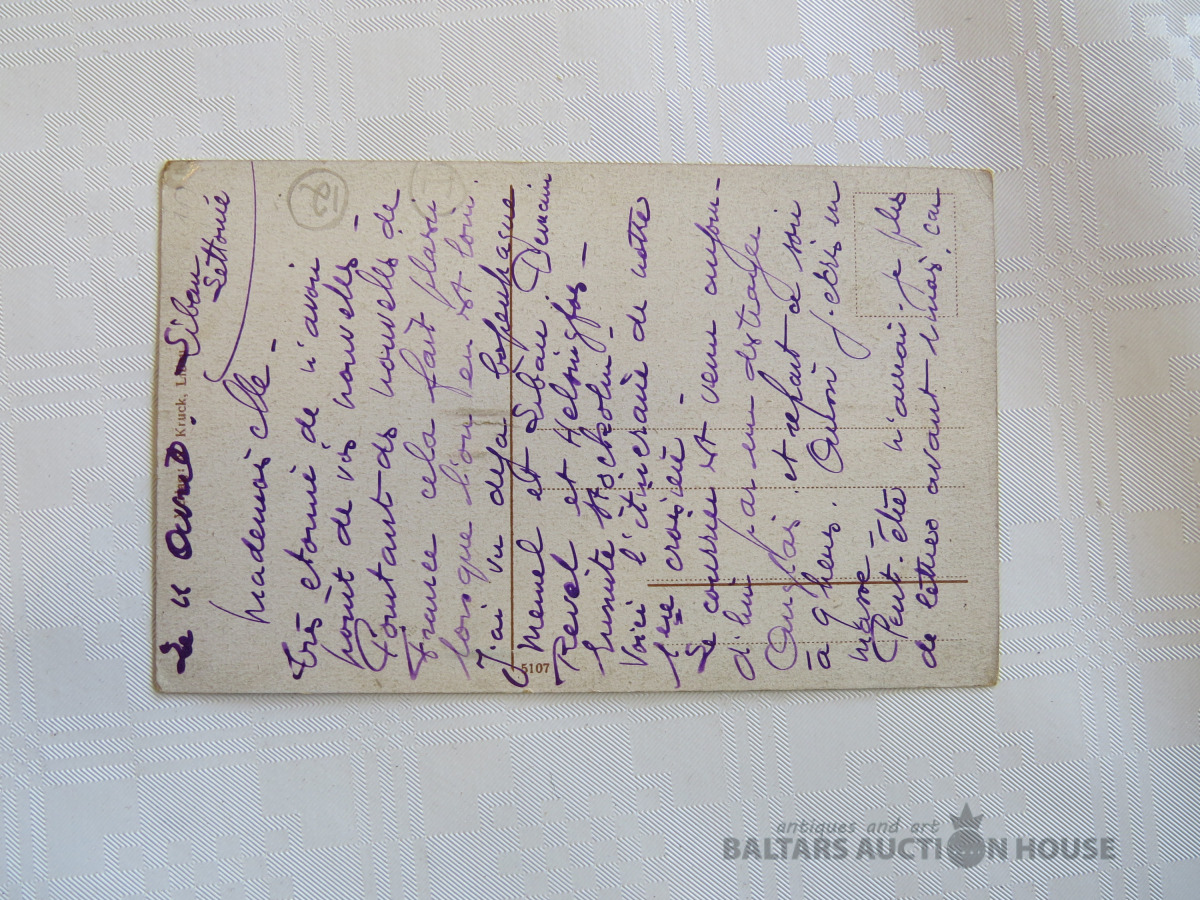 Le 11 Avril. Libau
Lettonie
Kruck, Li
Mademoiselle -
Très etonné de n'avoir
point de vos nouvelles -
Pourtant des nouvelles de
France cela fait plaisir
lorsque l'on en est loin
J'ai vu deja Copenhague
Memel et Libau Demain
Revel et Helsingfos -
Ensuite Stockolm -
Voici l'itineraire de notre
1ere croisière -
Le courrier est venu aujour-
d'hui par un destroyer
Anglais. et repart ce soir
à 9 heures. Aussi j'écris en
Peut-être n'aurai-je plus
de lettres avant 1 mois, car
5107
antiques and art
BALTARS AUCTION HOUSE